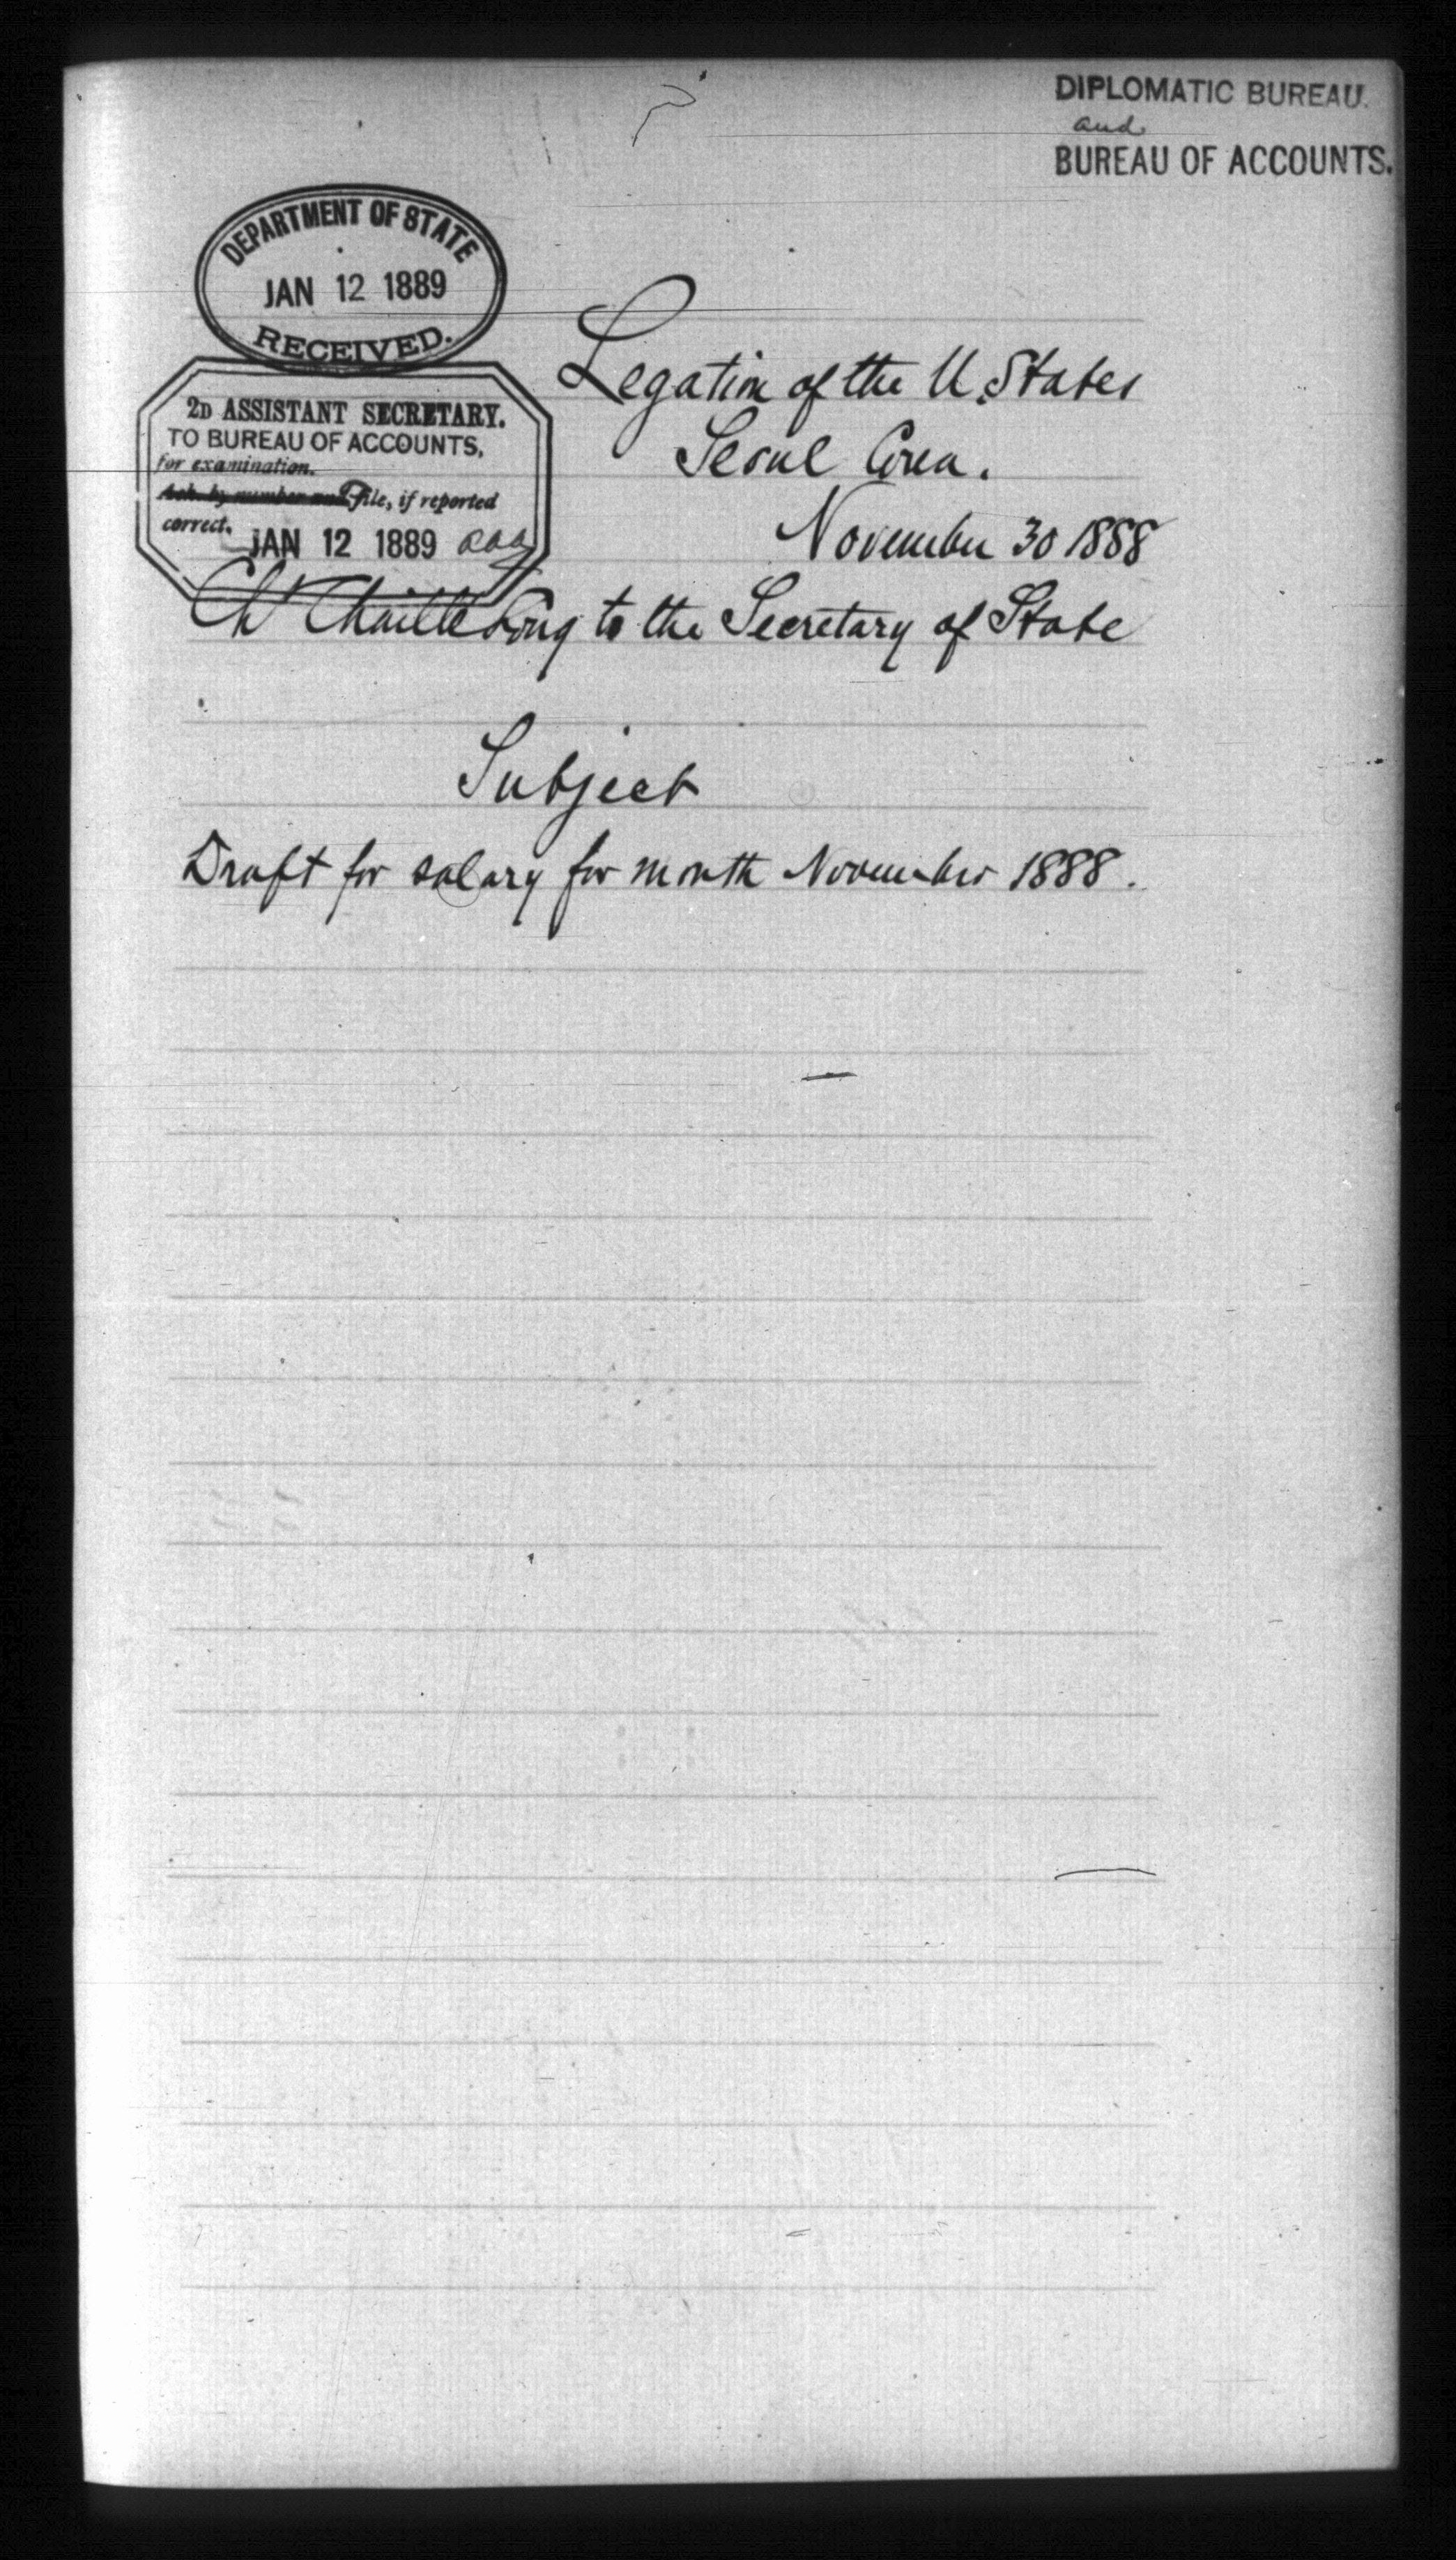 DIPLOMATIC BUREAU.
and
BUREAU OF ACCOUNTS.
DEPARTMENT OF STATE
JAN 12 1889
RECEIVED.
2D ASSISTANT SECRETARY.
TO BUREAU OF ACCOUNTS,
for examination.
File, if reported
correct.
JAN 12 1889
Legation of the U. States
Seoul Corea.
November 30 1888
Ch Chaillé Long to the Secretary of State
Subject
Draft for salary for month November 1888.